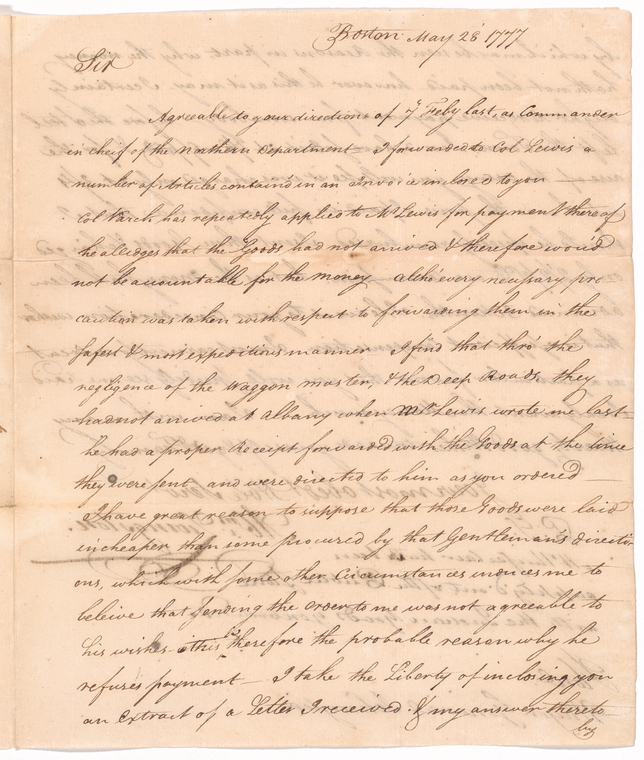 Boston May 28 1777
Sir
Agreeable to your directions of yr Feby last, as Commander
in cheif of the Northern Department — I forwarded to Col Lewis a
number of Articles contain'd in an Invoice inclosed to you —
Col has repeatedly applied to Mr Lewis for payment thereof
he alledges that the Goods had not arrived & therefore would
not be accountable for the money — altho' every necessary pre
caution was taken with respect to forwarding them in the
safest & most expeditious manner I find that thro' the
negligence of the Waggon master, & the Deep Roads, they
had not arrived at Albany when Mr Lewis wrote me last —
he had a proper Receipt forwarded with the Goods at the time
they were sent, and were directed to him as you ordered —
I have great reason to suppose that those Goods were laid
in cheaper than some procured by that Gentleman's directi
ons, which with some other Circumstances induces me to
beleive that sending the order to me was not agreeable to
his wishes this is therefore the probable reason why he
refuses payment — I take the Liberty of inclosing you
an Extract of a Letter I received & my answer thereto
by